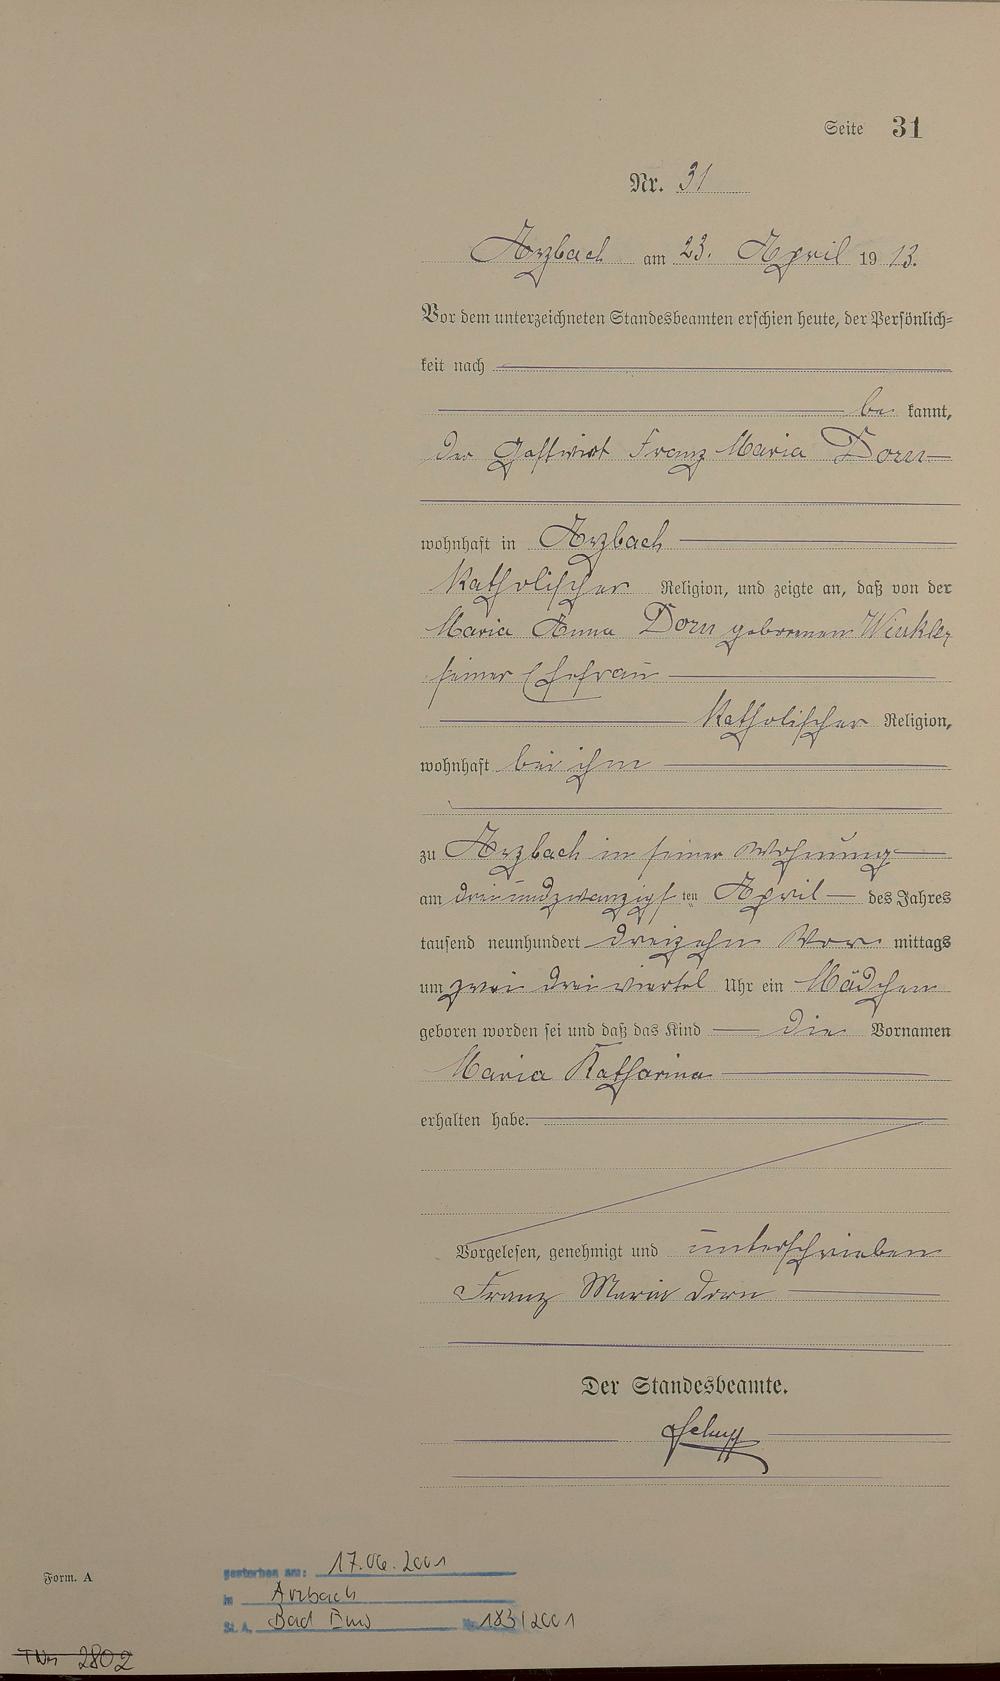 Seite 31
Nr. 31
Arzbach am 23. April 1913.
Vor dem unterzeichneten Standesbeamten erschien heute, der Persönlich=
keit nach
be kannt,
der Gastwirt Franz Maria Dorn
wohnhaft in Arzbach
katholischer Religion, und zeigte an, daß von der
Maria Anna Dorn geborenen Winkler,
seiner Ehefrau
katholischer Religion,
wohnhaft bei ihm
zu Arzbach in seiner Wohnung
am dreiundzwanzigsten April des Jahres
tausend neunhundert dreizehn Vor mittags
um zwei drei viertel Uhr ein Mädchen
geboren worden sei und daß das Kind die Vornamen
Maria Katharina
erhalten habe.
Vorgelesen, genehmigt und unterschrieben
Franz Maria Dorn
Der Standesbeamte.
Form. A
gestorben am: 17.06.2001
in Arzbach
St. A. Bad Ems Nr. 183/2001
2802